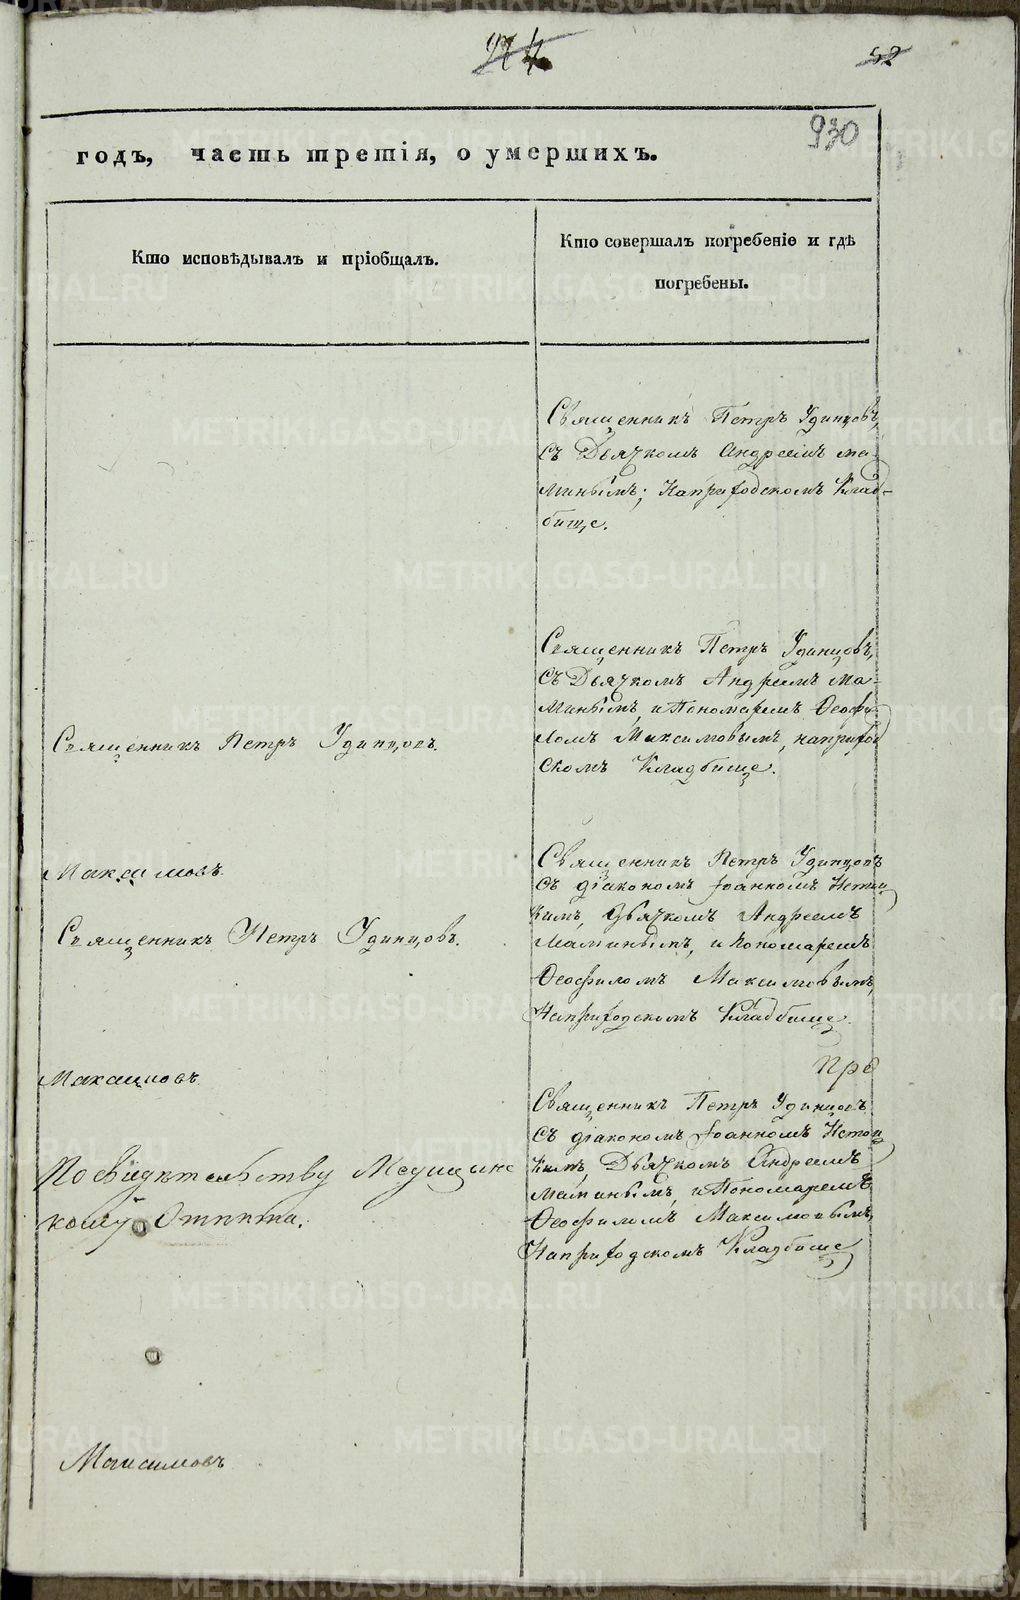 52
930
годъ, часть третія, о умершихъ.
Кто исповѣдывалъ и пріобщалъ.
Кто совершалъ погребеніе и гдѣ
погребены.
Священникъ Петръ Удинцовъ,
съ Дьячкомъ Андреемъ Ма-
минымъ; Наприходскомъ Клад-
бище.
Священникъ Петръ Удинцовъ,
съ Дьячкомъ Андреемъ Ма-
минымъ, и Пономаремъ Ѳеофи
ломъ Максимовымъ, наприход
скомъ Кладбище.
Священникъ Петръ Удинцовъ.
Максимовъ
Священникъ Петръ Удинцовъ
съ діакономъ Іоанномъ
кимъ, Дьячкомъ Андреемъ
Маминымъ, и Пономаремъ
Ѳеофиломъ Максимовымъ,
Наприходскомъ Кладбище.
Священникъ Петръ Удинцовъ.
Максимовъ
Священникъ Петръ Удинцовъ
съ діакономъ Іоанномъ
кимъ, Дьячкомъ Андреемъ
Маминымъ, и Пономаремъ
Ѳеофиломъ Максимовымъ,
Наприходскомъ Кладбище
Посвидѣтельству Медицинс
кому
Максимовъ
METRIKI.GASO-URAL.RU